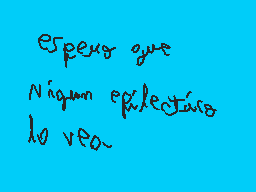 espero que
Nigun epilectico
lo vea